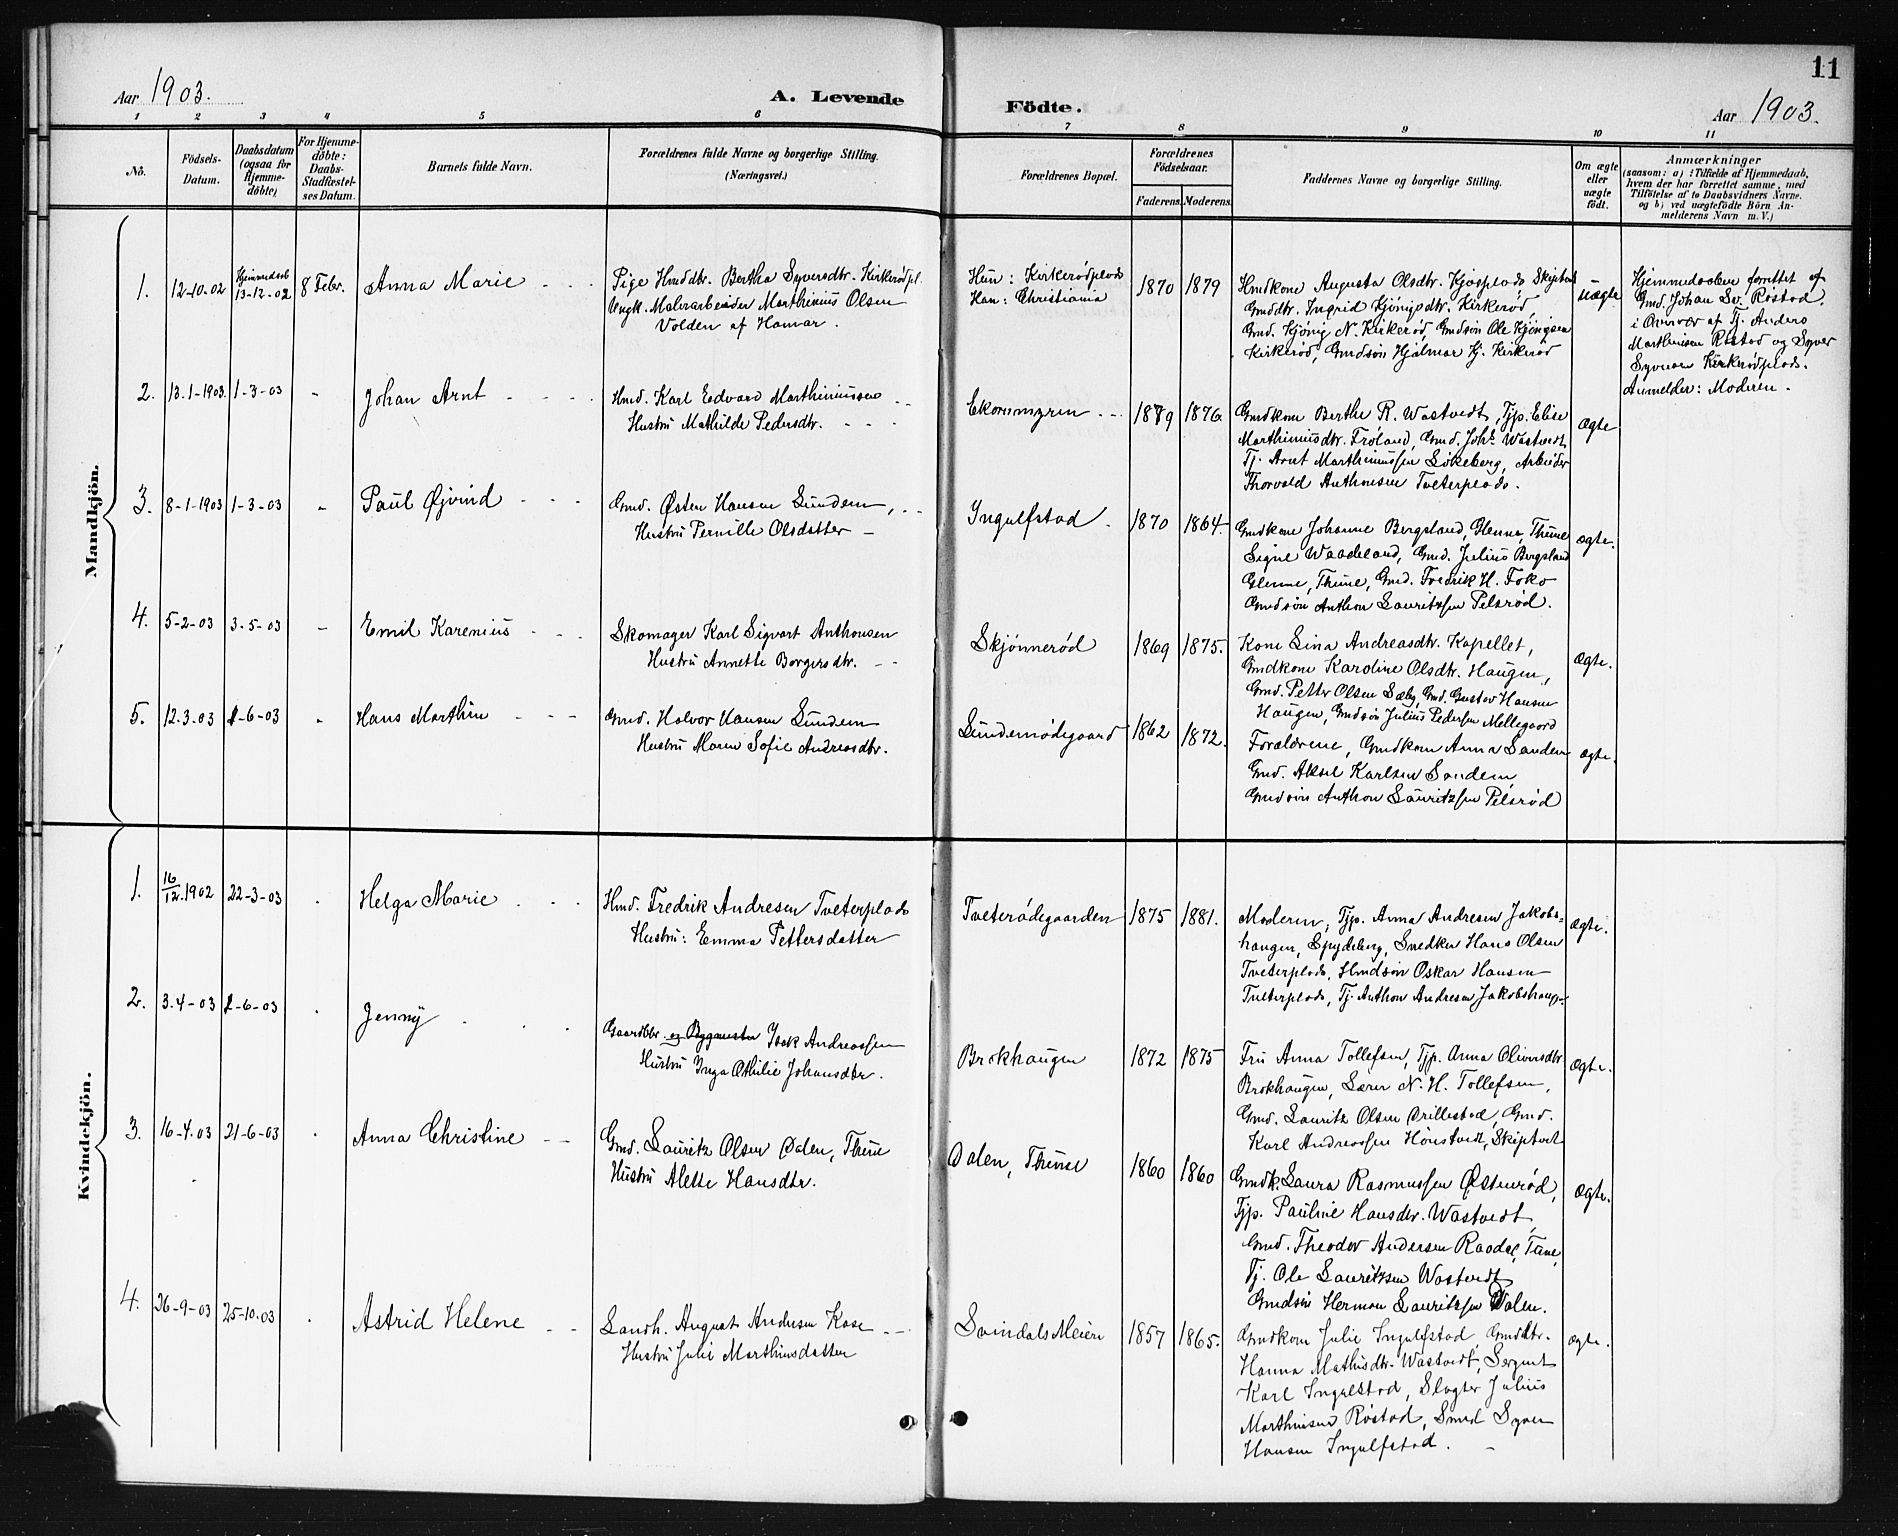 11
Aar 1903.
A. Levende
Födte.
Aar 1903.
1 2 3 4 5 6 7 8 9 10 11
No.
Födsels-Datum.
Daabsdatum (ogsaa for Hjemme-döbte)
For Hjemme-döbte: Daabs-Stadfæstel-ses Datum.
Barnets fulde Navn.
Forældrenes fulde Navne og borgerlige Stilling.
(Næringsvei.)
Forældrenes Bopæl.
Forældrenes Födselsaar.
Faderens. Moderens.
Faddernes Navne og borgerlige Stilling.
Om ægte eller uægte födt.
Anmærkninger
(saasom: a) i Tilfælde af Hjemmedaab,
hvem der har forrettet samme, med
Tilföielse af to Daabsvidners Navne.
og b) ved uægtefödte Börn An-
melderens Navn m. V.)
Mandkjön.
1. 12-10-02 Hjemmedøb 13-12-02 8 Febr. Anna Marie
Pige Hmddtr. Bertha Syversdtr. Kirkerødpl.
Ungk. Malerarbeider Marthinius Olsen
Volden af Hamar.
Hun: Kirkerødplads
Han: Christiania
1870 1879
Hmdkone Augusta Olsdtr. Kjosplads Skiptvet
Gmddtr. Ingrid Kjönigsdtr. Kirkerød,
Gmd. Kjönig N. Kirkerød, Gmdsön Ole Kjönigsen
Kirkerød, Gmdsön Hjalmar Kj. Kirkerød
uægte
Hjemmedaaben forrettet af
Gmd. Johan Sv. Röstad.
i Overvær af Tj. Anders
Marthinsen Röstad og Syver
Syversen Kirkerødplads.
Anmelder: Moderen.
2. 13.1-1903. 1-3-03 Johan Arnt
Hmd. Karl Edvard Marthiniussen
Hustru Mathilde Pedersdtr.
Ekornmyren
1879 1876.
Gmdkone Berthe R. Wastvedt, Tjp. Elise
Marthiniusdtr. Fröland, Gmd. Johs. Wastvedt
Tj. Arnt Marthiniussen Løkeberg, Arbeider
Thorvald Anthonsen Tveterplads.
ægte
3. 8-1-1903 1-3-03 Paul Øjvind
Gmd. Østen Hansen Sundem,
Hustru Pernille Olsdatter
Ingulfstad.
1870 1864.
Gmdkone Johanne Bergsland, Glenne, Thune
Signe Waadeland, Gmd. Julius Bergsland
Glenne, Thune, Gmd. Fredrik H. Foko
Gmdsön Anthon Lauritzsen Pelsrød.
ægte.
4. 5-2-03 3-5-03 Emil Karenius
Skomager Karl Sigvart Anthonsen
Hustru Annette Borgersdtr.
Skjønnerød
1869 1875.
Kone Lina Andreasdtr. Kapellet,
Gmdkone Karoline Olsdtr. Haugen,
Gmd. Petter Olsen Sæby, Gmd. Gustav Hansen
Haugen, Gmdsön Julius Pedersen Mellegaard
ægte.
5. 12.3.03 1-6-03 Hans Marthin
Gmd. Halvor Hansen Sundem
Hustru Maren Sofie Andreasdtr.
Sundemødegaard
1862 1872.
Forældrene, Gmdkone Anna Sandem
Gmd. Aksel Karlsen Sandem
Gmdsön Anthon Lauritzsen Pelsrød
ægte.
Kvindekjön.
1. 16/12.1902 22-3-03 Helga Marie
Hmd. Fredrik Andresen Tveterplads
Hustru: Emma Pettersdatter
Tveterødegaarden
1875 1881.
Moderen, Tjp. Anna Andresen Jakobs-
haugen, Spydeberg, Snedker Hans Olsen
Tveterplads, Hmdsön Oskar Hansen
Tveterplads, Tj. Anthon Andresen Jakobshaug-
ægte.
2. 3.4-03 1-6-03 Jenny
Gaardbr. og Bygmester Isak Andreassen
Hustru Inga Othilie Johansdtr.
Brokhaugen
1872 1875
Fru Anna Tollefsen, Tjp. Anna Oliversdtr
Brokhaugen, Lærer N. H. Tollefsen,
Gmd. Lauritz Olsen Orillestad, Gmd.
Karl Andreassen Hönstvedt, Skiptvet
ægte.
3. 16-4.03 21-6-03 Anna Christine
Gmd. Lauritz Olsen Dalen, Thune
Hustru Alette Hansdtr.
Dalen, Thune
1860 1860
Gmdk. Laura Rasmussen Østenrød,
Tjp. Pauline Hansdtr. Wastvedt,
Gmd. Theodor Andersen Raadal, Tune,
Tj. Ole Lauritzsen Wastvedt
Gmdsön Herman Lauritzsen Dalen.
ægte.
4. 26-9-03 25-10.03 Astrid Helene
Landh. August Andersen Kase
Hustru Julie Marthinsdatter
Svindals Meieri
1857 1865.
Gmdkone Julie Ingulfstad, Gmddtr.
Hanna Mathisdtr. Wastvedt, Sergent
Karl Ingulfstad, Slagter Julius
Marthinsen Röstad, Smed Syver
Hansen Ingulfstad.
ægte.